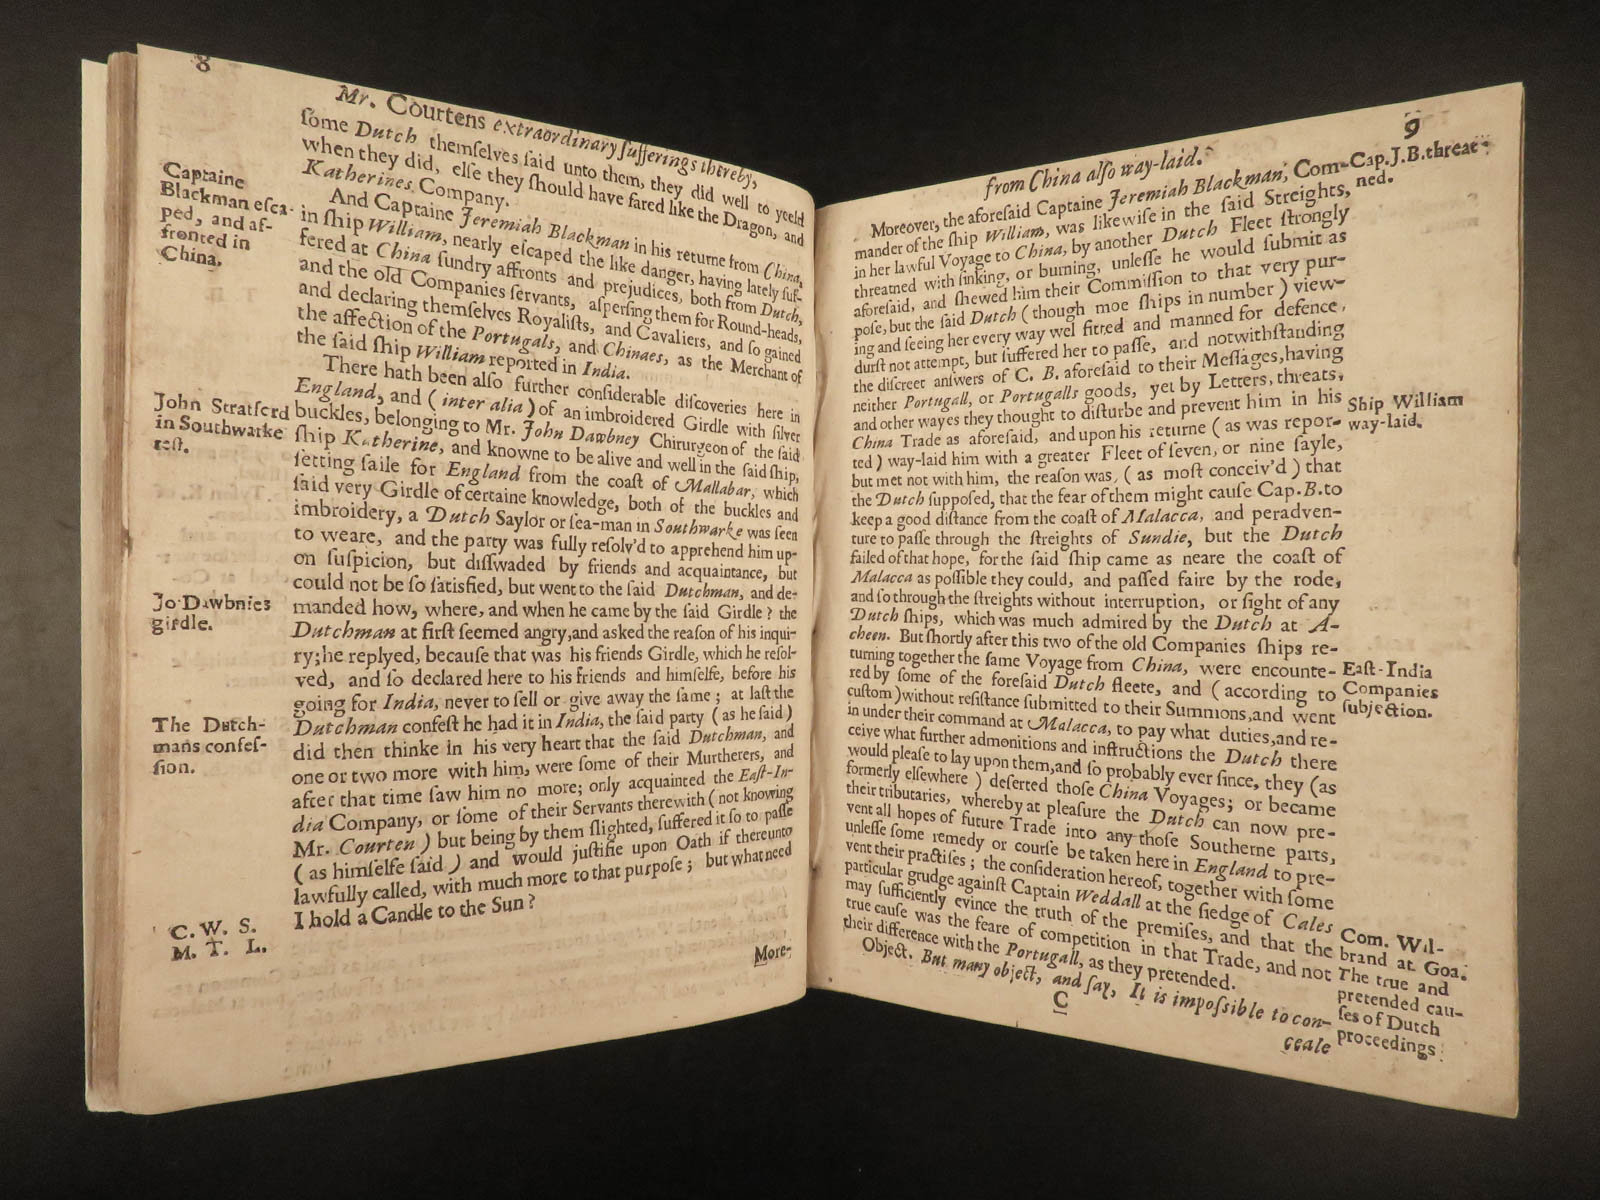 8
Mr. Courtens extraordinary ſufferings thereby,
ſome Dutch themſelves ſaid unto them, they did well to yeeld
when they did, elſe they ſhould have fared like the Dragon, and
Katherines Company.
And Captaine Jeremiah Blackman in his returne from China,
in ſhip William, nearly eſcaped the like danger, having lately ſuf-
fered at China ſundry affronts and prejudices, both from Dutch,
and the old Companies ſervants, aſperſing them for Round-heads,
and declaring themſelves Royaliſts, and Cavaliers, and ſo gained
the affection of the Portugals, and Chinaes, as the Merchant of
the ſaid ſhip William reported in India.
There hath been alſo further conſiderable diſcoveries here in
England, and ( inter alia ) of an imbroidered Girdle with ſilver
buckles, belonging to Mr. John Dawbney Chirurgeon of the ſaid
ſhip Katherine, and knowne to be alive and well in the ſaid ſhip,
ſetting ſaile for England from the coaſt of Mallabar, which
ſaid very Girdle of certaine knowledge, both of the buckles and
imbroidery, a Dutch Saylor or ſea-man in Southwarke was ſeen
to weare, and the party was fully reſolv'd to apprehend him up-
on ſuſpicion, but diſſwaded by friends and acquaintance, but
could not be ſo ſatisfied, but went to the ſaid Dutchman, and de-
manded how, where, and when he came by the ſaid Girdle? the
Dutchman at firſt ſeemed angry, and asked the reaſon of his inqui-
ry; he replyed, becauſe that was his friends Girdle, which he reſol-
ved, and ſo declared here to his friends and himſelfe, before his
going for India, never to ſell or give away the ſame; at laſt the
Dutchman confeſt he had it in India, the ſaid party ( as he ſaid )
did then thinke in his very heart that the ſaid Dutchman, and
one or two more with him, were ſome of their Murtherers, and
after that time ſaw him no more; only acquainted the Eaſt-In-
dia Company, or ſome of their Servants therewith ( not knowing
Mr. Courten ) but being by them ſlighted, ſuffered it ſo to paſſe
( as himſelfe ſaid ) and would juſtifie upon Oath if thereunto
lawfully called, with much more to that purpoſe; but what need
I hold a Candle to the Sun?
More-
Captaine
Blackman eſca-
ped, and af-
fronted in
China.
John Stratferd
in Southwarke
teſt.
Jo. Dawbnies
girdle.
The Dutch-
mans confeſ-
ſion.
C. W. S.
M. T. L.
9
from China alſo way-laid.
Moreover, the aforeſaid Captaine Jeremiah Blackman, Com-
mander of the ſhip William, was likewiſe in the ſaid Streights,
in her lawful Voyage to China, by another Dutch Fleet ſtrongly
threatned with ſinking, or burning, unleſſe he would ſubmit as
aforeſaid, and ſhewed him their Commiſſion to that very pur-
poſe, but the ſaid Dutch ( though moe ſhips in number ) view-
ing and ſeeing her every way wel fitted and manned for defence,
durſt not attempt, but ſuffered her to paſſe, and notwithſtanding
the diſcreet anſwers of C. B. aforeſaid to their Meſſages, having
neither Portugall, or Portugalls goods, yet by Letters, threats,
and other wayes they thought to diſturbe and prevent him in his
China Trade as aforeſaid, and upon his returne ( as was repor-
ted ) way-laid him with a greater Fleet of ſeven, or nine ſayle,
but met not with him, the reaſon was, ( as moſt conceiv'd ) that
the Dutch ſuppoſed, that the fear of them might cauſe Cap. B. to
keep a good diſtance from the coaſt of Malacca, and peradven-
ture to paſſe through the ſtreights of Sundie, but the Dutch
failed of that hope, for the ſaid ſhip came as neare the coaſt of
Malacca as poſſible they could, and paſſed faire by the rode,
and ſo through the ſtreights without interruption, or ſight of any
Dutch ſhips, which was much admired by the Dutch at A-
cheen. But ſhortly after this two of the old Companies ſhips re-
turning together the ſame Voyage from China, were encounte-
red by ſome of the foreſaid Dutch fleete, and ( according to
cuſtom ) without reſiſtance ſubmitted to their Summons, and went
in under their command at Malacca, to pay what duties, and re-
ceive what further admonitions and inſtructions the Dutch there
would pleaſe to lay upon them, and ſo probably ever ſince, they ( as
formerly elſewhere ) deſerted thoſe China Voyages; or became
their tributaries, whereby at pleaſure the Dutch can now pre-
vent all hopes of future Trade into any thoſe Southerne parts,
unleſſe ſome remedy or courſe be taken here in England to pre-
vent their practiſes; the conſideration hereof, together with ſome
particular grudge againſt Captain Weddall at the ſiedge of Cales
may ſufficiently evince the truth of the premiſes, and that the
true cauſe was the feare of competition in that Trade, and not
their difference with the Portugall, as they pretended.
Object. But many object, and ſay, It is impoſſible to con-
C
ceale
Cap. J. B. threat-
ned.
Ship William
way-laid.
Eaſt-India
Companies
ſubjection.
Com. Wil-
brand at Goa.
The true and
pretended cau-
ſes of Dutch
proceedings: